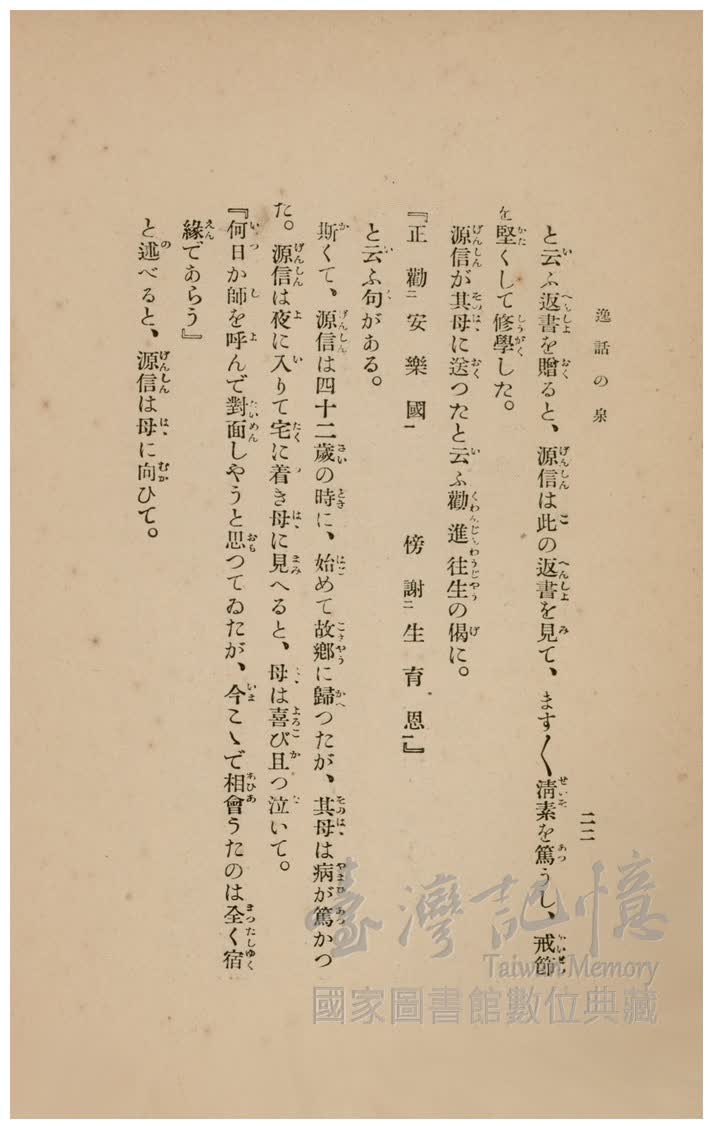 逸話の泉
二二
と云ふ返書を贈ると、源信は此の返書を見て、ます〱淸素を篤うし、戒節
を堅くして修學した。
源信が其母に送つたと云ふ勸進往生の偈に。
『正勸㆓安樂國㆒ 傍謝㆓生育恩㆒』
と云ふ句がある。
斯くて、源信は四十二歲の時に、始めて故鄕に歸つたが、其母は病が篤かつ
た。源信は夜に入りて宅に着き母に見へると、母は喜び且つ泣いて。
『何日か師を呼んで對面しやうと思つてゐたが、今こゝで相會うたのは全く宿
緣であらう』
と述べると、源信は母に向ひて。
臺灣記憶
Taiwan Memory
國家圖書館數位典藏